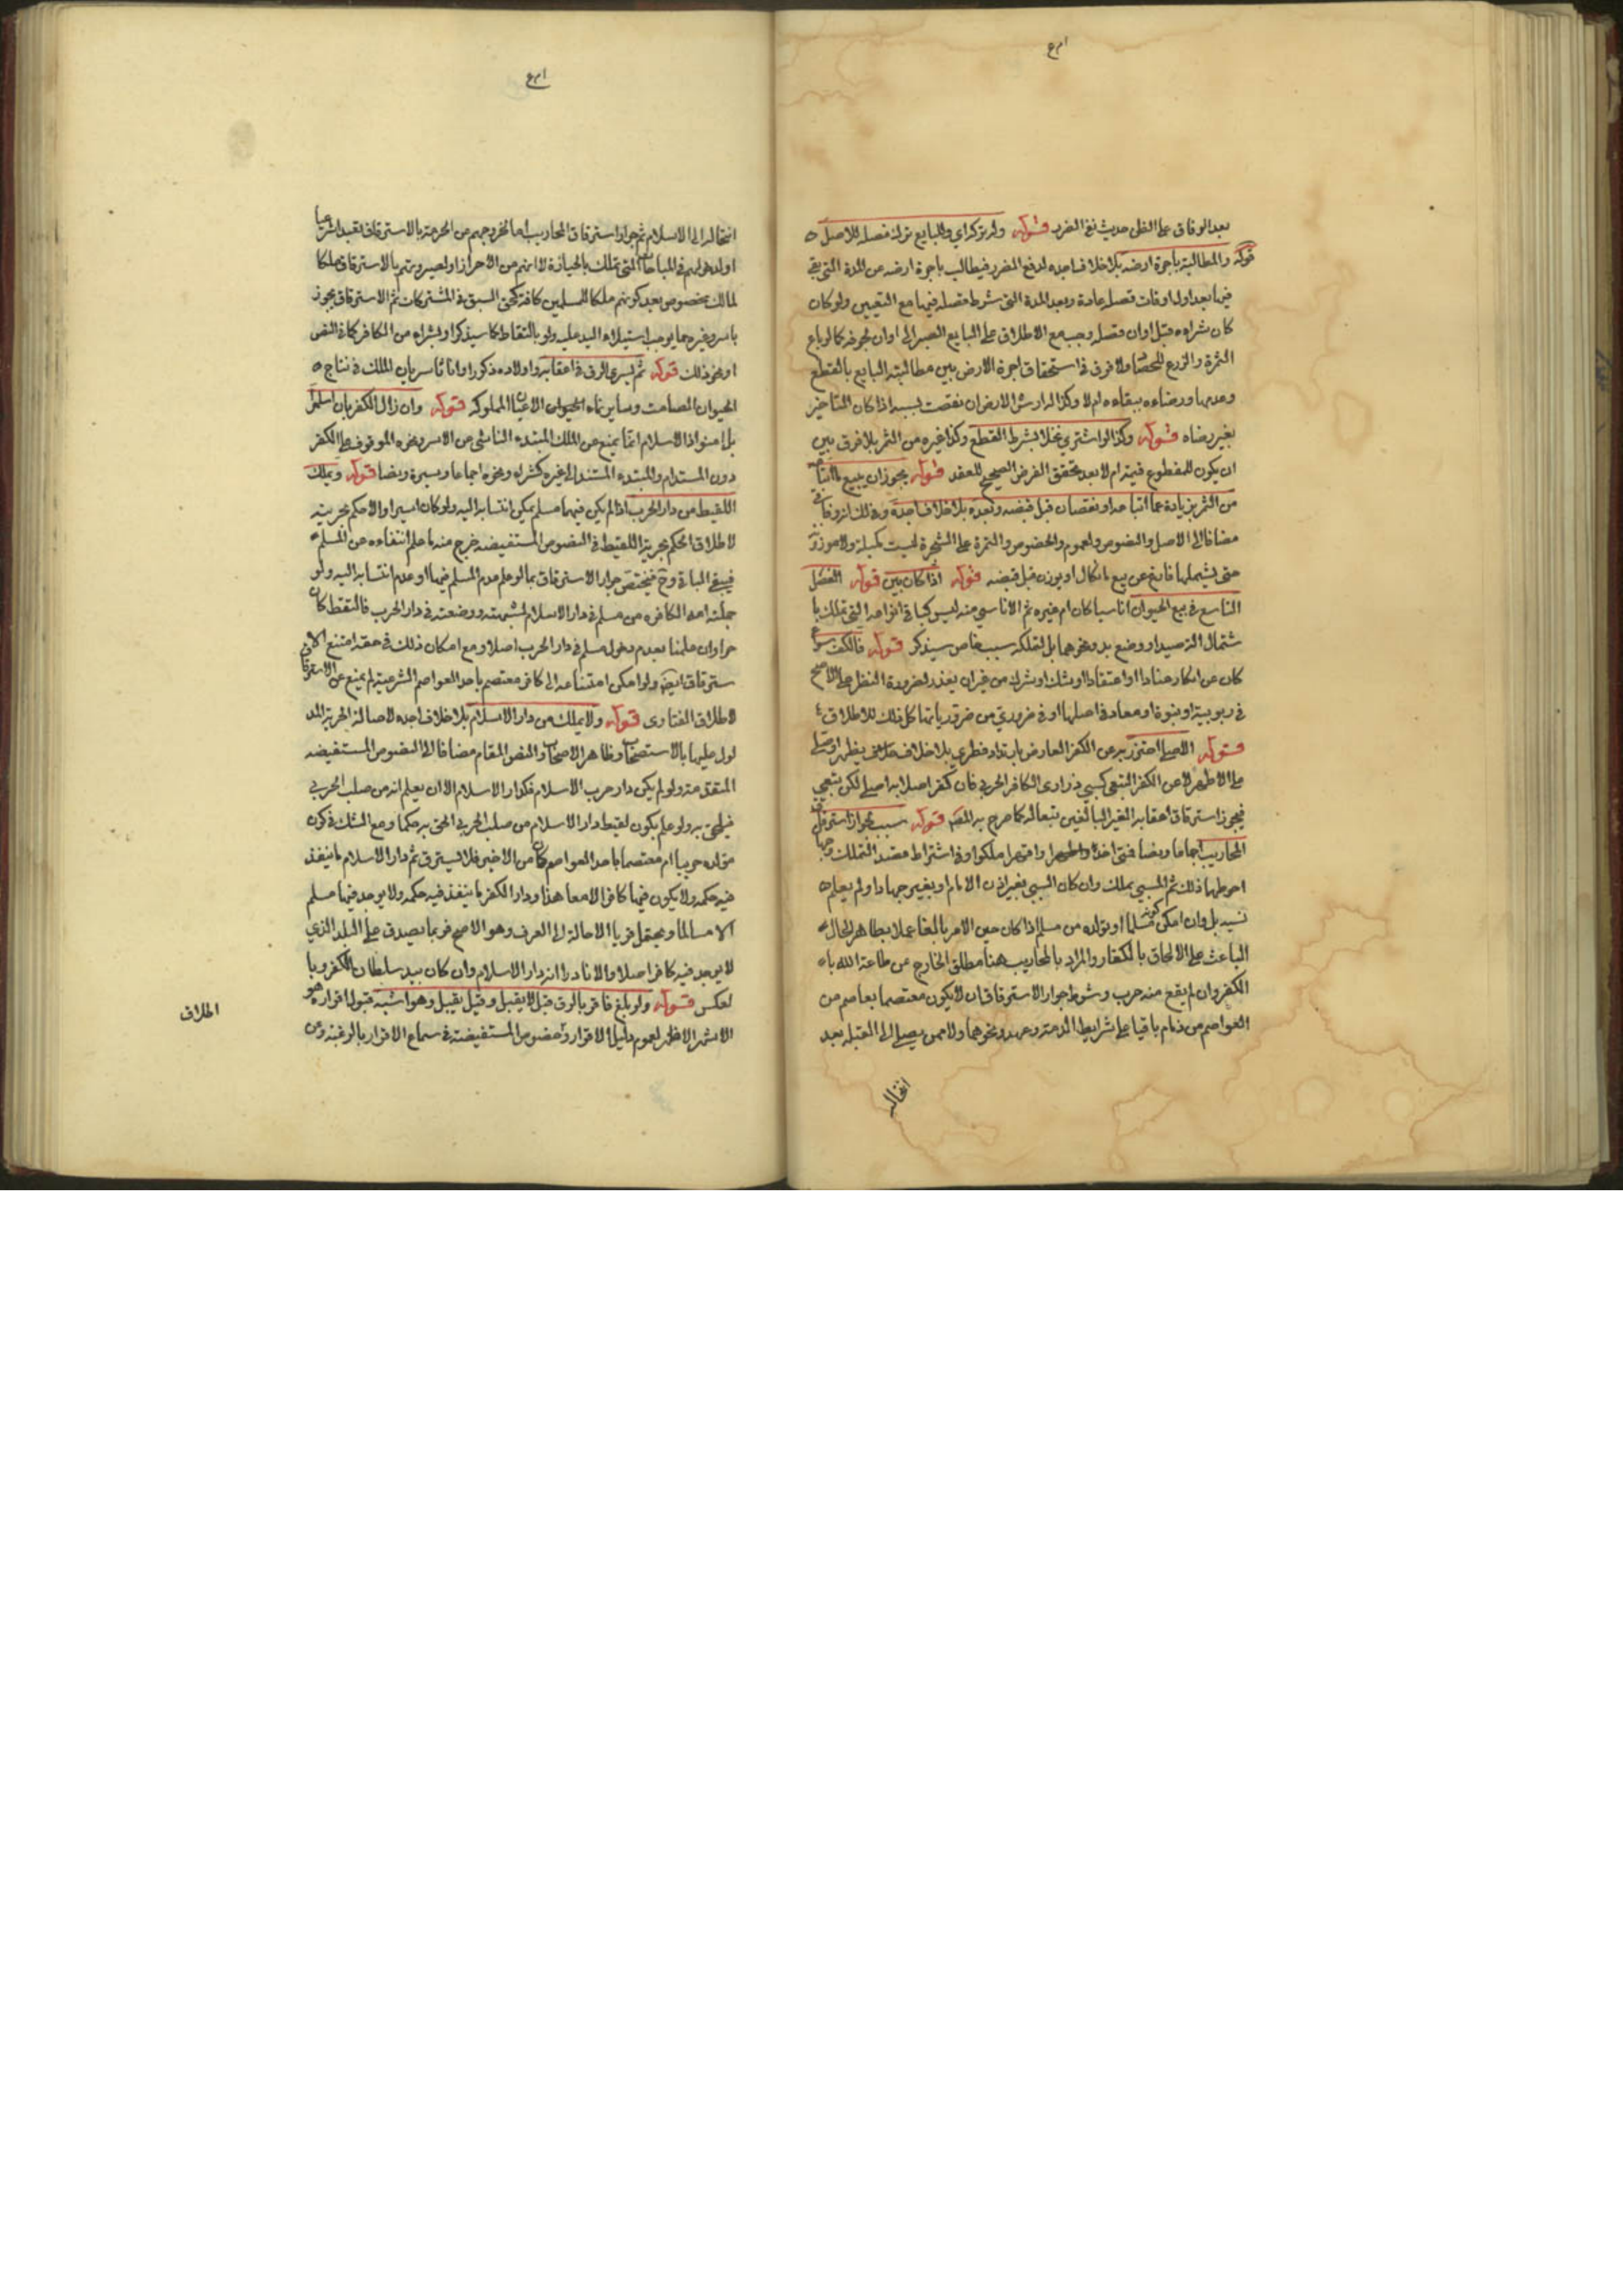 بعد الوفاق على الظن حديث نفي الضرر قوله وله تركه اي وللبايع ترك فصله للاصل
قوله والمطالبة باجرة ارضه بلا خلاف اجده لدفع الضرر فيطالب باجرة ارضه من المدة التي بقي
فيها بعد اول اوقات فصله عادة وبعد المدة التي شرط فصله فيها مع التعيين ولو كان
كان شراه قبل اوان فصله وجب مع الاطلاق على البايع الصبر الى اوان نحوه كما لو باع
الثمرة والزرع للحصاد ولا فرق في استحقاق اجرة الارض بين مطالبته البايع بالقطع
وعدمها ورضاءه ببقاءه ام لا وكذا له ارش الارض ان نقصت بسببه اذا كان التاخير
بغير رضاه قوله وكذا لو اشترى نخلا بشرط القطع وكذا غيره من الثمر بلا فرق بين
ان يكون للمقطوع قيمة ام لا بعد تحقق الغرض الصحيح للعقد قوله يجوز ان يبيع ما ابتاعه
من الثمر بزيادة عما ابتاعه او نقصان قبل قبضه وبعده بلا خلاف اجده
مضافا الى الاصل والنصوص والعموم والخصوص والثمرة على الشجرة ليست مكيلة ولا موزونة
حتى يشملها ما نهى عن بيع ما يكال او يوزن قبل قبضه قوله اذا كان بين قوله الفصل
التاسع في بيع الحيوان اناسيا كان ام غيره ثم الاناسي منه ليس كباقي انواعه التي تملك با
شتمال الة صيد او وضع يد ونحوهما بل لتملكه سبب خاص سيذكر قوله فالكفر سواء
كان عن انكار عنادا او اعتقادا او شك او شرك من غير ان يعذر لضرورة النظر على الاصح
في ربوبية او نبوة او معاد في اصلها او في ضروري من ضرورياتها كل ذلك للاطلاق
قوله الاصلي احترز به عن الكفر العارض بارتداد فطري بلا خلاف
على الاظهر لا عن الكفر التبعي كسبي ذراري الكافر الحربي فان كفر اصلابه اصلي لكن تبعي
فيجوز استرقاق اعقابه الغير البالغين تبعا له كما صرح به المصنف قوله سبب لجواز استرقاق
المحاربين اجماعا ونصا فمتى اخذوا واقهروا ملكوا وفي اشتراط قصد التملك وجهان
احوطهما ذلك ثم المسبي يملك وان كان السبي بغير اذن الامام او بغير جهاد او لم يعلم
نسبه بل وان امكن كونه مسلما او تولده من مسلم اذا كان حين الامر بالغا عملا بظاهر الحال
الباعث على الالحاق بالكفار والمراد بالمحاربين هنا مطلق الخارج عن طاعة الله با
الكفر وان لم يقع منه حرب وشرط جواز الاسترقاق ان لا يكون معتصما بعاصم من
العواصم من ذمام باقيا على شرايط الذمة وعهد ونحوهما ولا ممن يصلي الى القبلة بعد
انتحاله
انتحاله الى الاسلام ثم جواز استرقاق المحاربين اما لخروجهم من الحرمة بالاسترقاق تعبدا شرعيا
او لدخولهم في المباحات التي تملك بالحيازة لانهم من الاحراز او لصيرورتهم بالاسترقاق ملكا
لمالك مخصوص بعد كونهم ملكا للمسلمين كافة كحق السبق في المشتركات ثم الاسترقاق يجوز
باسر وغيره مما يوجب استيلاء اليد عليه ولو بالتقاط كما سيذكر او بشراء من الكافر كما في النص
او نحو ذلك قوله ثم يسري الرق في اعقابه واولاده ذكورا واناثا سريان الملك في نتاج
الحيوان الصامت وساير نماء الحيوان الاعيان المملوكة قوله وان زال الكفر بان اسلموا
بل امنوا اذ الاسلام انما يمنع عن الملك المبتدء الناشي عن الاسر ونحوه الموقوف على الكفر
دون المستدام والمبتدء المستند الى غيره كشراء ونحوه اجماعا وسيرة ونصا قوله ويملك
اللقيط من دار الحرب اذا لم يكن فيها مسلم يمكن انتسابه اليه ولو كان اسيرا والا حكم بحريته
لاطلاق الحكم بحرية اللقيط في النصوص المستفيضة خرج منه ما علم انتفاءه من المسلم
فيبقى الباقي وح فيختص جواز الاسترقاق بما لو علم عدم المسلم فيها او عدم انتسابه اليه ولو
حملته امه الكافرة من مسلم في دار الاسلام لشبهته ووضعته في دار الحرب فالتقط كان
حرا وان علمنا بعدم دخول مسلم في دار الحرب اصلا ومع امكان ذلك في حقه امتنع الا
سترقاق ايضا ولو امكن امتناعه الى كافر معتصم باحد العواصم الشرعية لم يمنع عن الاسترقاق
لاطلاق الفتاوى قوله ولا يملك من دار الاسلام بلا خلاف اجده لاصالة الحرية المد
لول عليها بالاستصحاب وظاهر الاصحاب والنص المقام مضافا الى النصوص المستفيضة
المتقدمة ولو لم يكن دار حرب الاسلام فكدار الاسلام الا ان يعلم انه من صلب الحربي
فيلحق به ولو علم بكون لقيط دار الاسلام من صلب الحربي الحق به حكما ومع الشك في كون
مولده حربيا ام معتصما باحد العواصم كان من الاخير فلا يسترق ثم دار الاسلام ما ينفذ
فيه حكمه ولا يكون فيها كافر الا معاهدا ودار الكفر ما ينفذ فيه حكمه ولا يوجد فيها مسلم
الا مسالما ويحتمل قويا الاحالة الى العرف وهو الاصح فربما يصدق على البلد الذي
لا يوجد فيه كافر اصلا والا نادرا انه دار الاسلام وان كان بيد سلطان الكفر وبا
لعكس قوله ولو بلغ فاقر بالرق قيل لا يقبل وقيل يقبل وهو اشبه قبول اقراره هو
الاشهر الاظهر لعموم دليل الاقرار وخصوص المستفيضة في سماع الاقرار بالرقية ومن
اطلاق